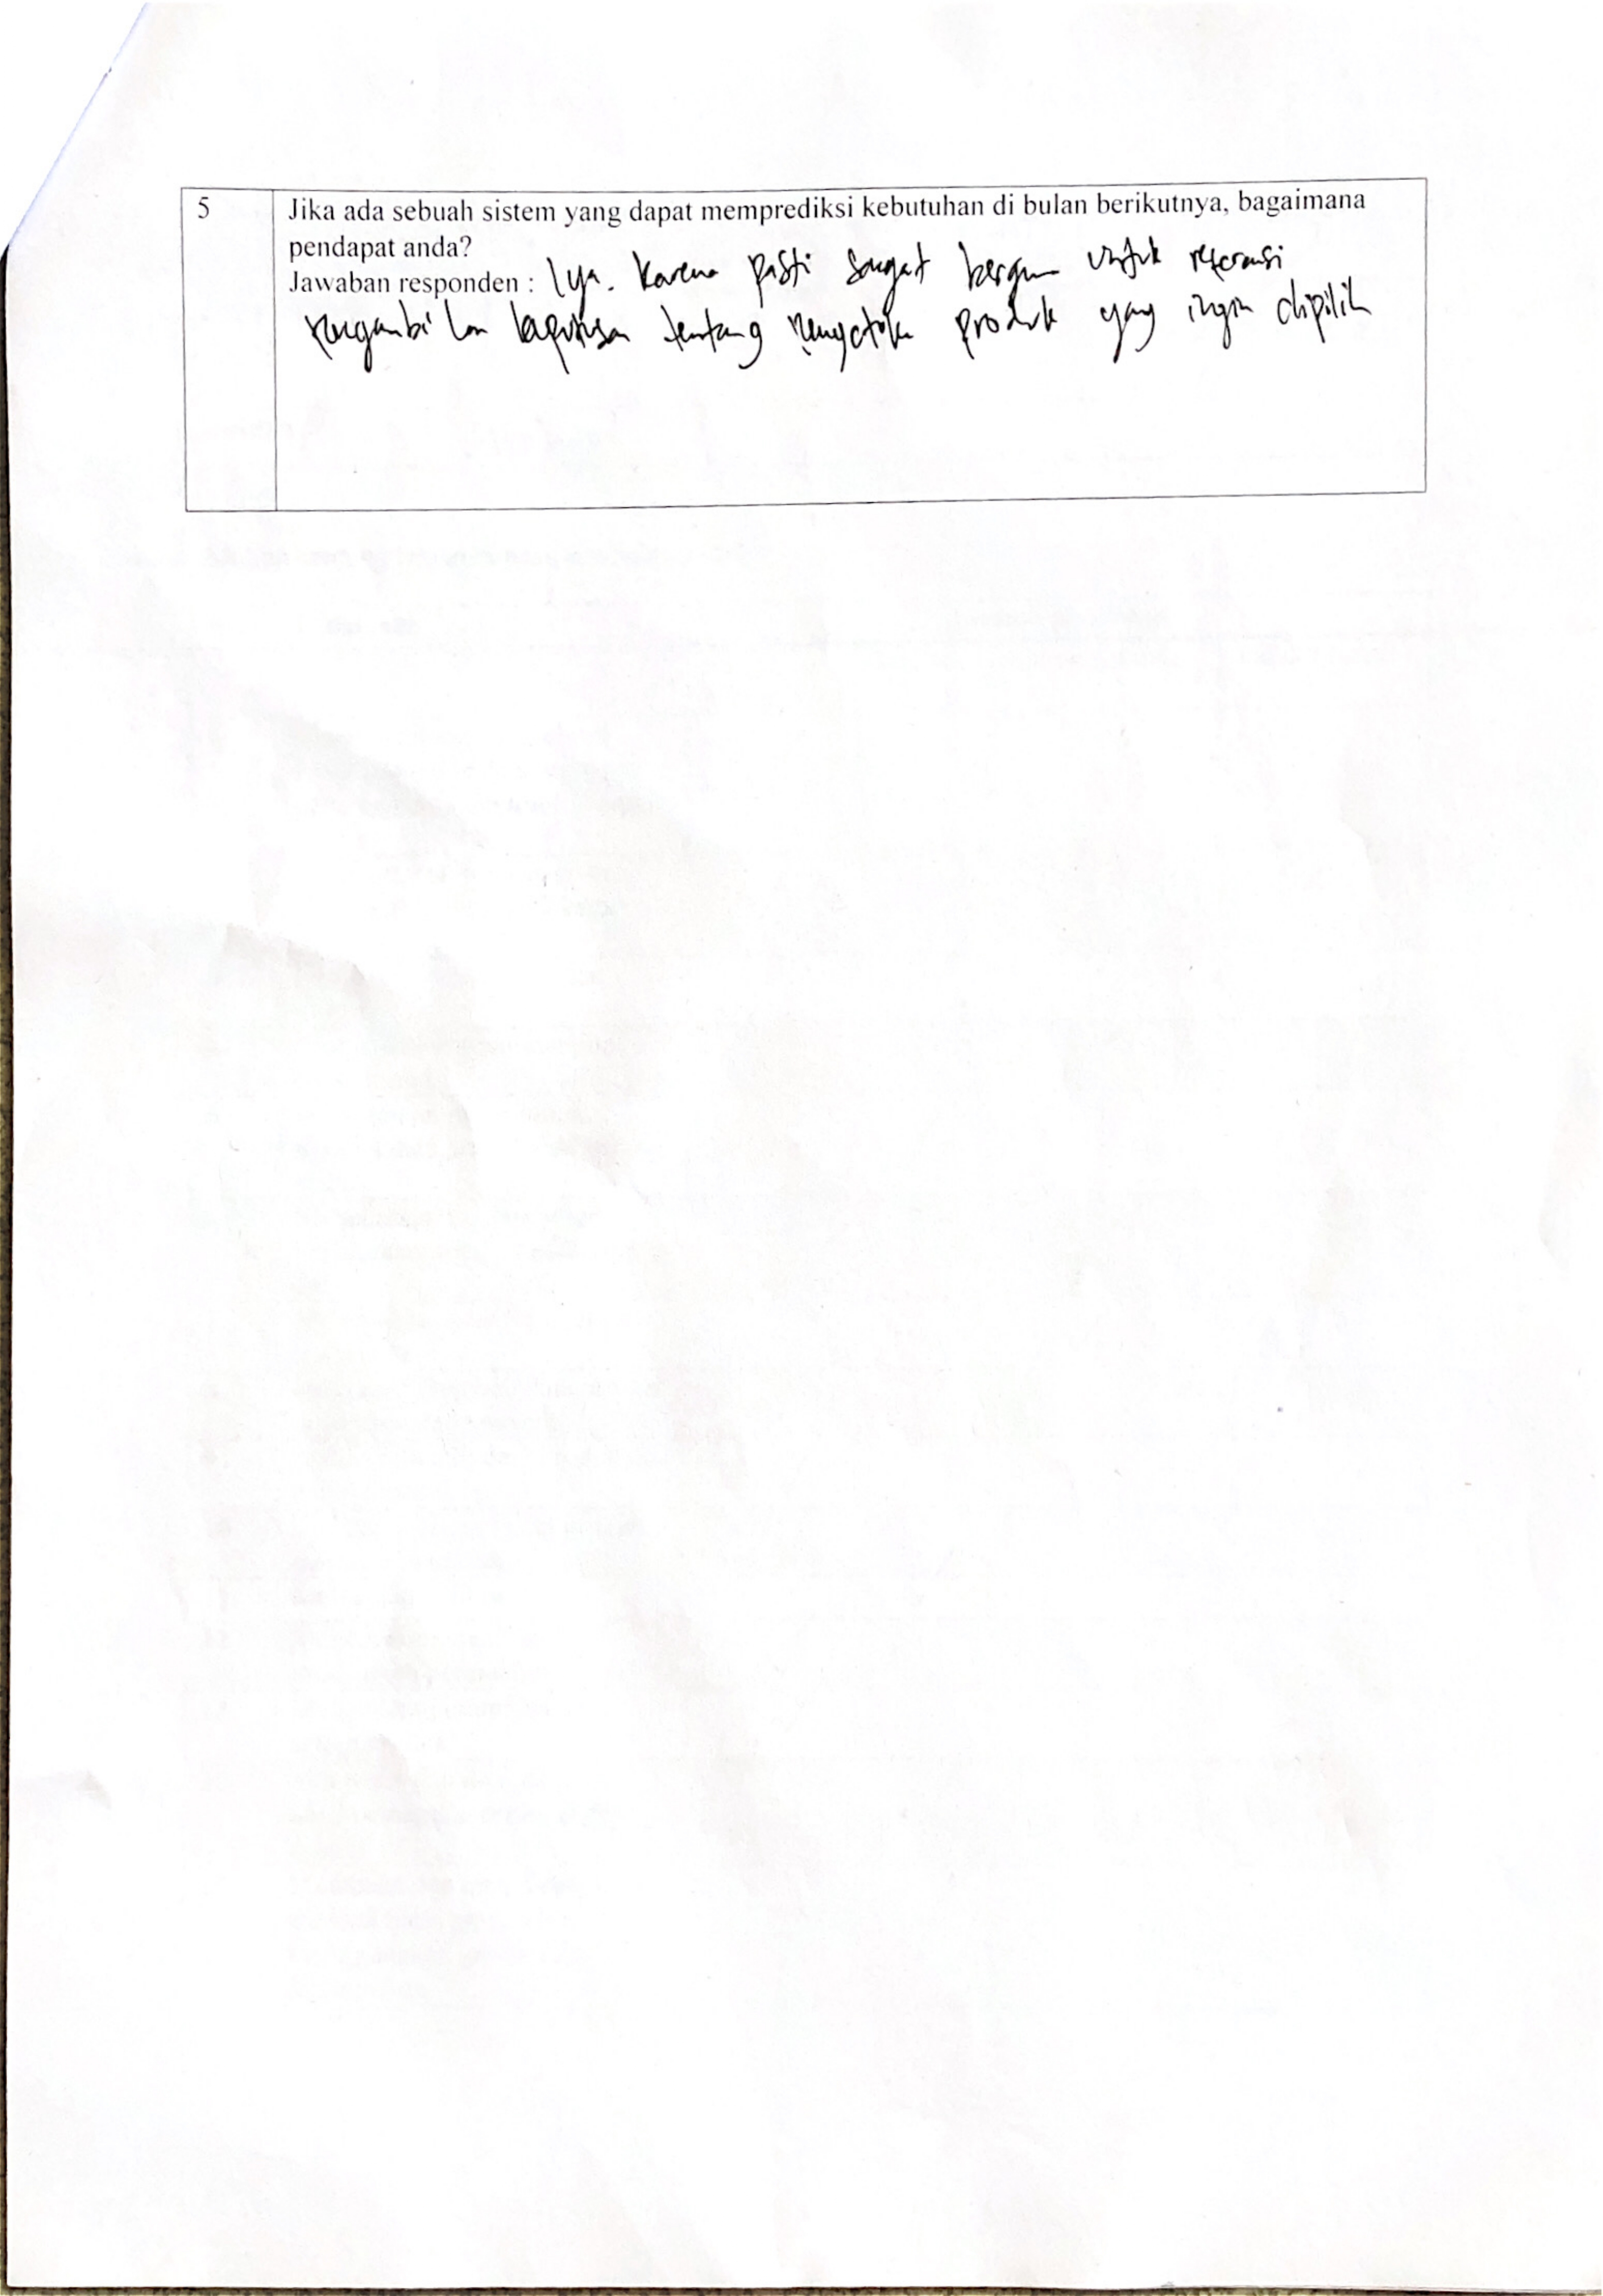 5
Jika ada sebuah sistem yang dapat memprediksi kebutuhan di bulan berikutnya, bagaimana
pendapat anda?
Jawaban responden : Iya. Karena pasti sangat berguna untuk referensi
pengambilan keputusan tentang menyetok produk yang ingin dipilih